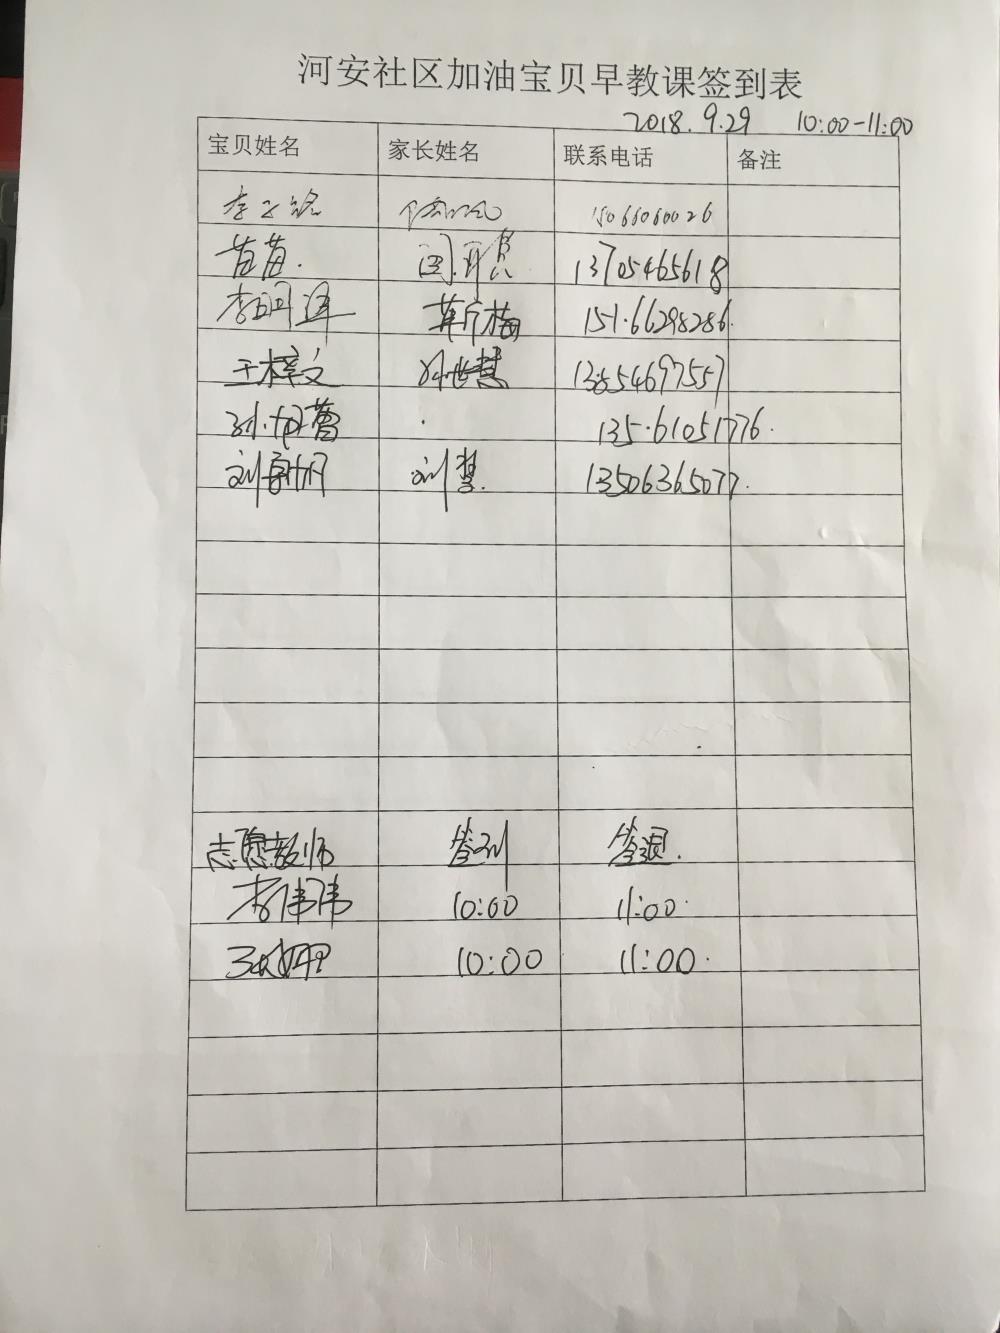 河安社区加油宝贝早教课签到表
2018.9.29 10:00-11:00
宝贝姓名 家长姓名 联系电话 备注
李子铭 15066060026
苗苗. 闫 13705465618
李明泽 靳广梅 151.66298286.
王梓文 孙世慧 13854697557
孙 135.61051776.
刘 刘慧. 13506365077.
志愿教师 签到 签退.
李伟伟 10:00 11:00.
10:00 11:00.